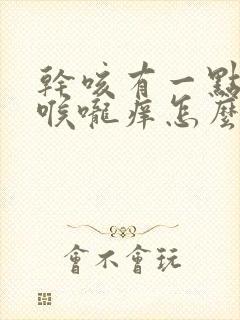 幹咳有一點
喉嚨癢怎麼
會不會玩